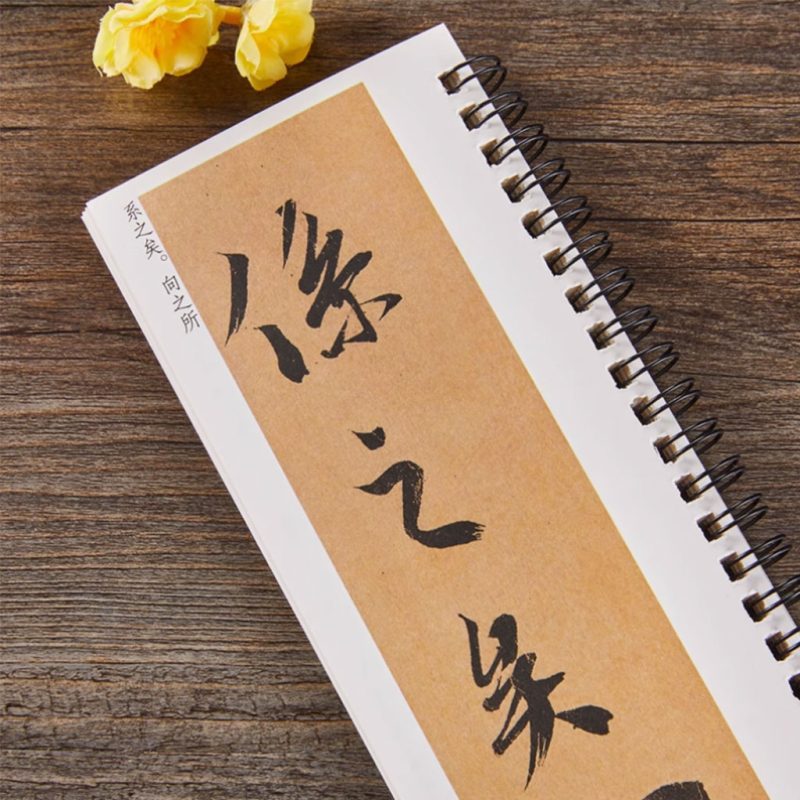 系之矣。向之所
係之矣